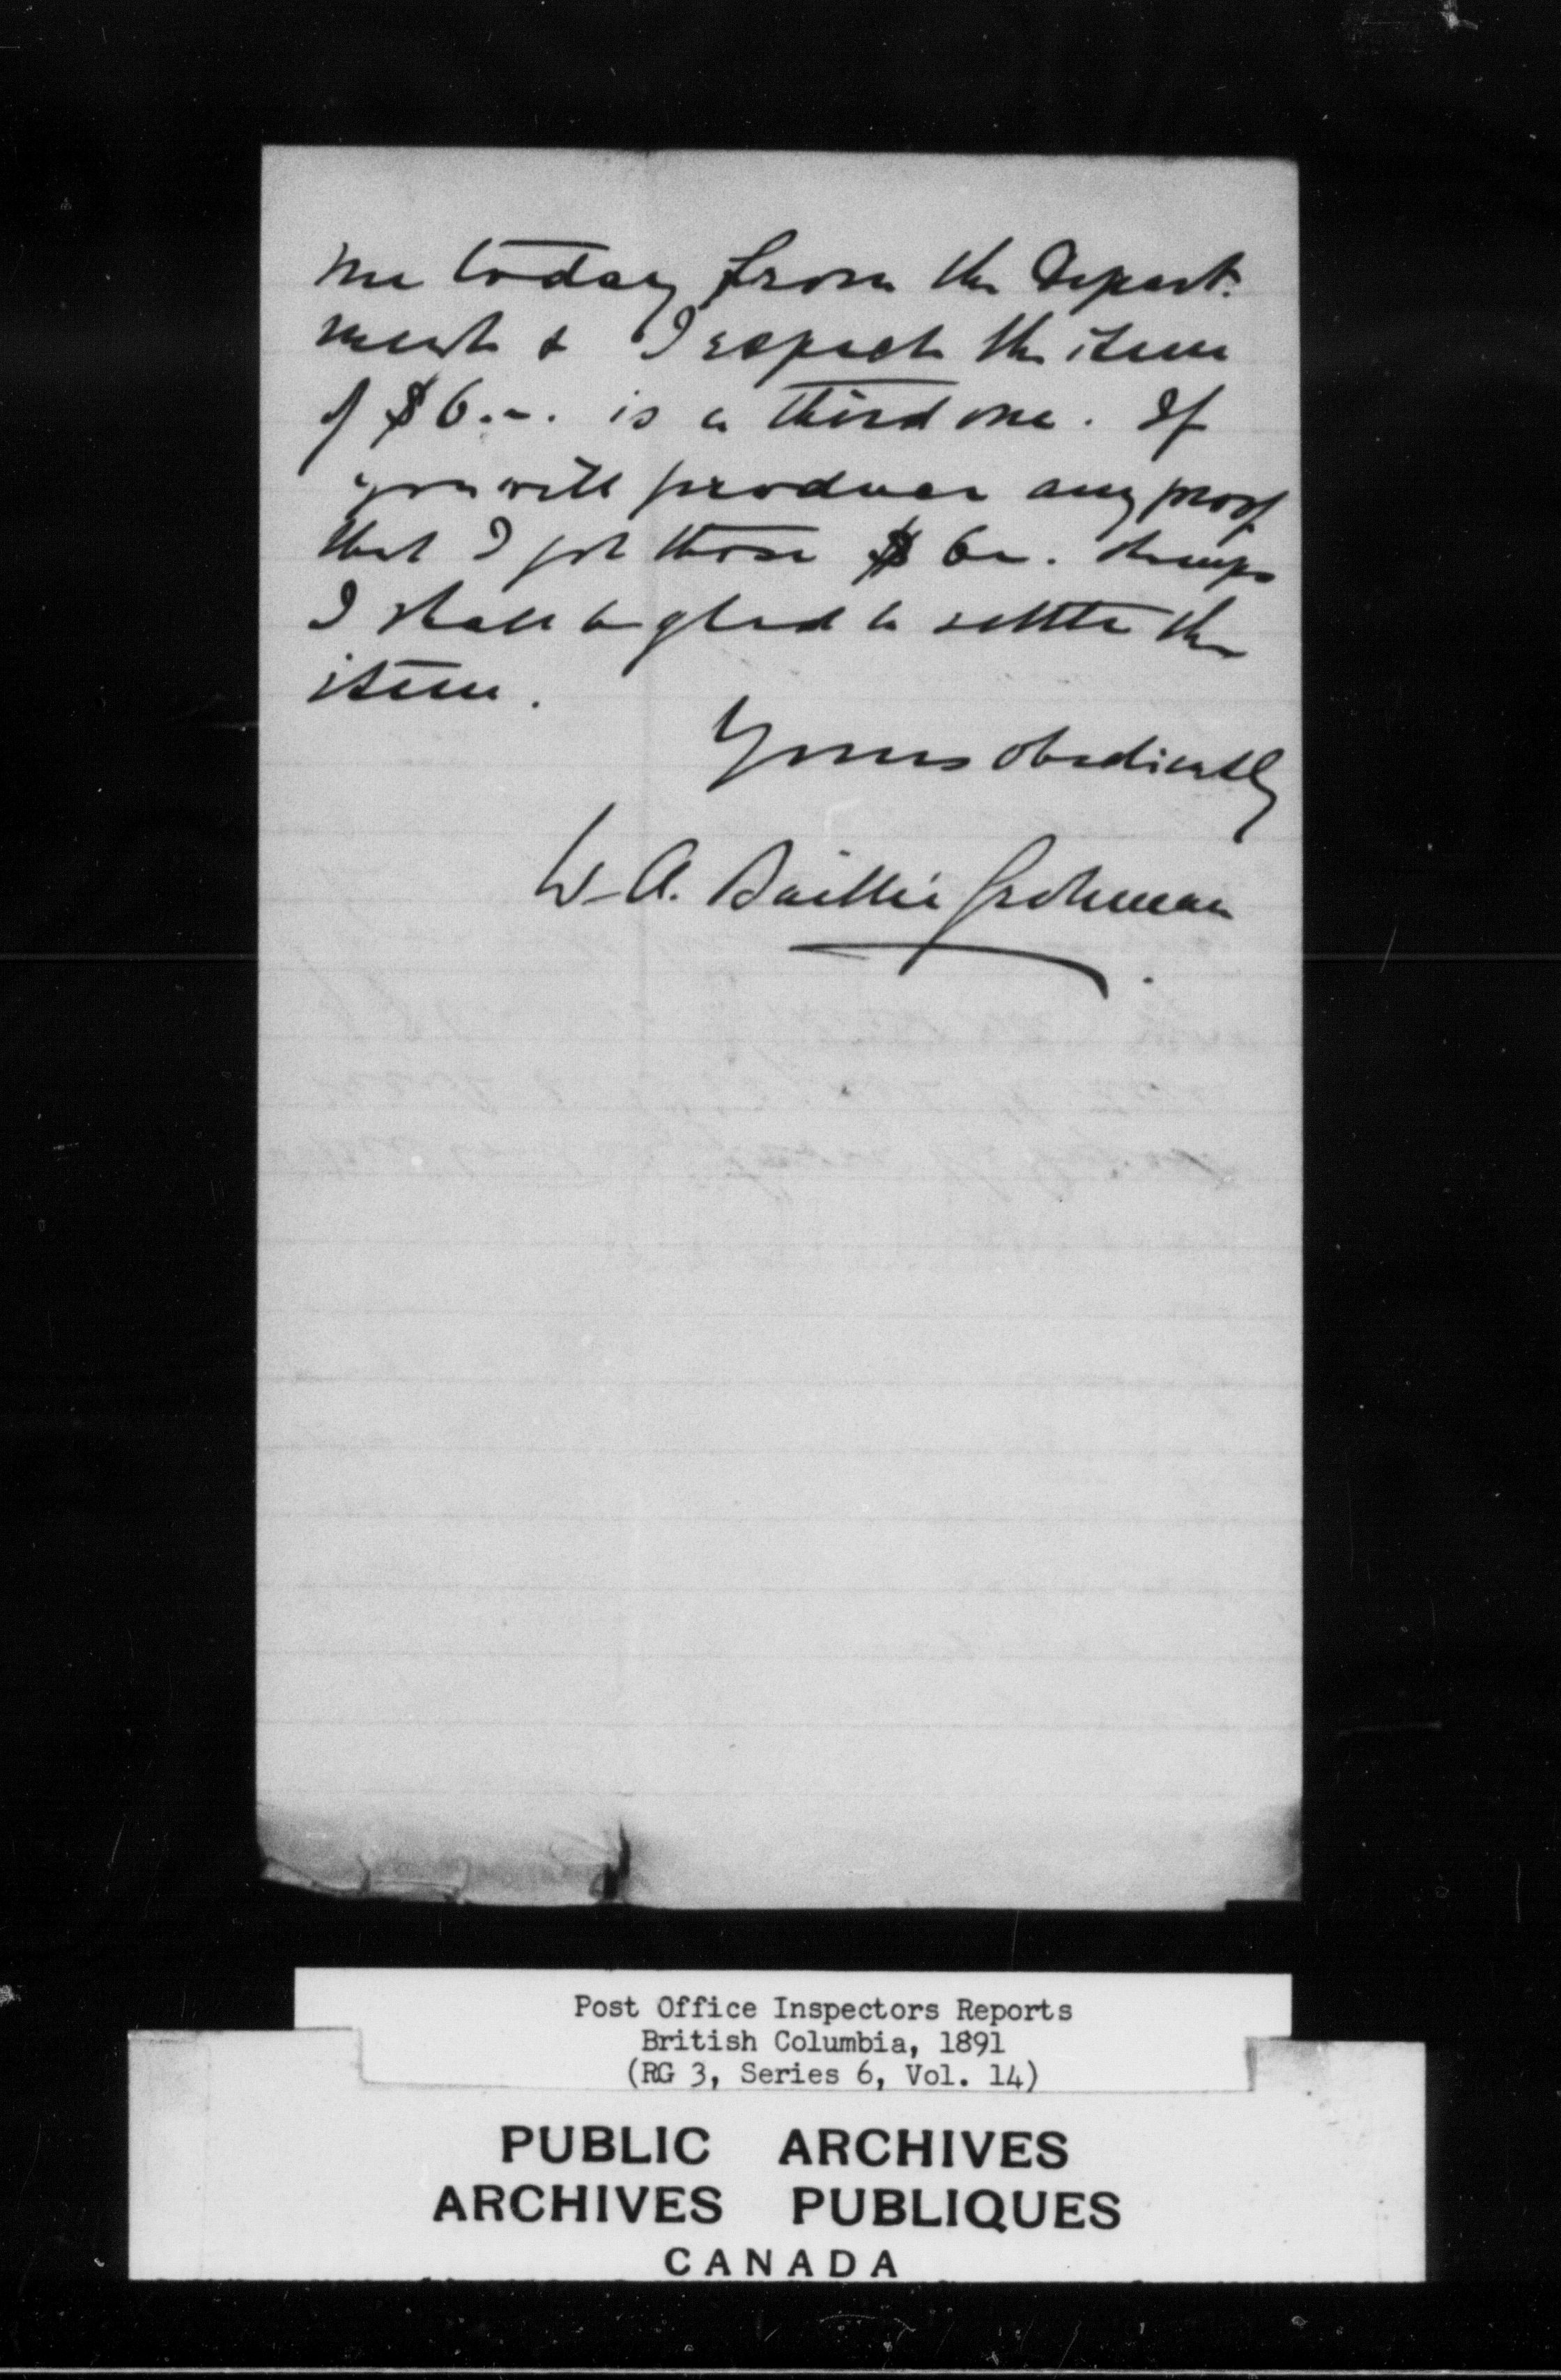 me today from the Depart-
ment & I expect the item
of $6.-. is a third one. If
you will produce any proof
that I got those $6-. stamps
I shall be glad to settle the
item.
Yours obediently
W. A. Baillie Grohman
Post Office Inspectors Reports
British Columbia, 1891
(RG 3, Series 6, Vol. 14)
PUBLIC ARCHIVES
ARCHIVES PUBLIQUES
CANADA